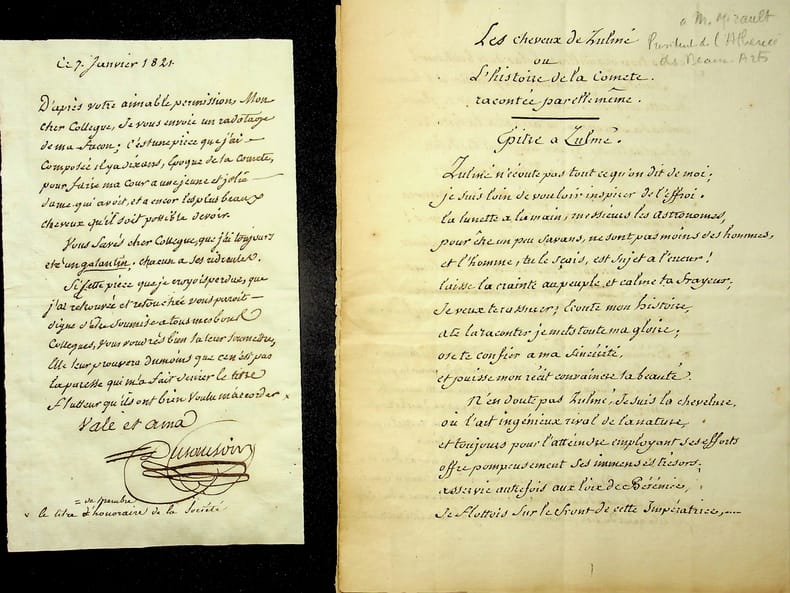 Ce 7. Janvier 1821
D'après votre aimable permission, Mon
cher Collegue, Je vous envoie un radotage
de ma façon; c'est une piece que j'ai
Composée il y a dix ans, Epoque de la Comete,
pour faire ma Cour a une jeune et jolie
dame qui avoit, et a encor les plus beaux
cheveux qu'il soit possible de voir.
Vous savés cher Collegue, que j'ai toujours
eté un galantin. chacun a ses ridicules.
Si cette piece que je croyois perdue, que
j'ai retrouvée et retouchée vous paroit
digne d'être soumise a tous mes bons
Collegues, vous voudrés bien la leur soumettre,
Elle leur prouvera du moins que ce n'est pas
la paresse qui m'a fait desirer le titre
flatteur qu'ils ont bien voulu m'accorder x
Vale et ama
Dusausoir
x le titre d'honoraire de la Société
Les cheveux de Zulmé
ou
L'histoire de la Comete.
racontée par elle même.
a M. Mirault
President de l'Athenée
des Beaux Arts
Epitre a Zulmé.
Zulmé n'écoute pas tout ce qu'on dit de moi;
je suis loin de vouloir inspirer de l'effroi.
la lunette a la main, messieurs les Astronomes,
pour être un peu savans, ne sont pas moins des hommes,
et l'homme, tu le sçais, est sujet a l'erreur!
laisse la crainte au peuple et calme ta frayeur;
Je veux te rassurer; écoute mon histoire,
a te la raconter je mets toute ma gloire;
ose te confier a ma sincérité,
et jouisse mon récit convaincre ta beauté.
N'en doute pas Zulmé, Je suis la chevelure,
ou l'art ingénieux rival de la nature,
et toujours pour l'atteindre employant ses efforts
offre pompeusement ses immenses trésors;
asservie autrefois aux loix de Bérénice,
Je flottois sur le front de cette Impératrice,....